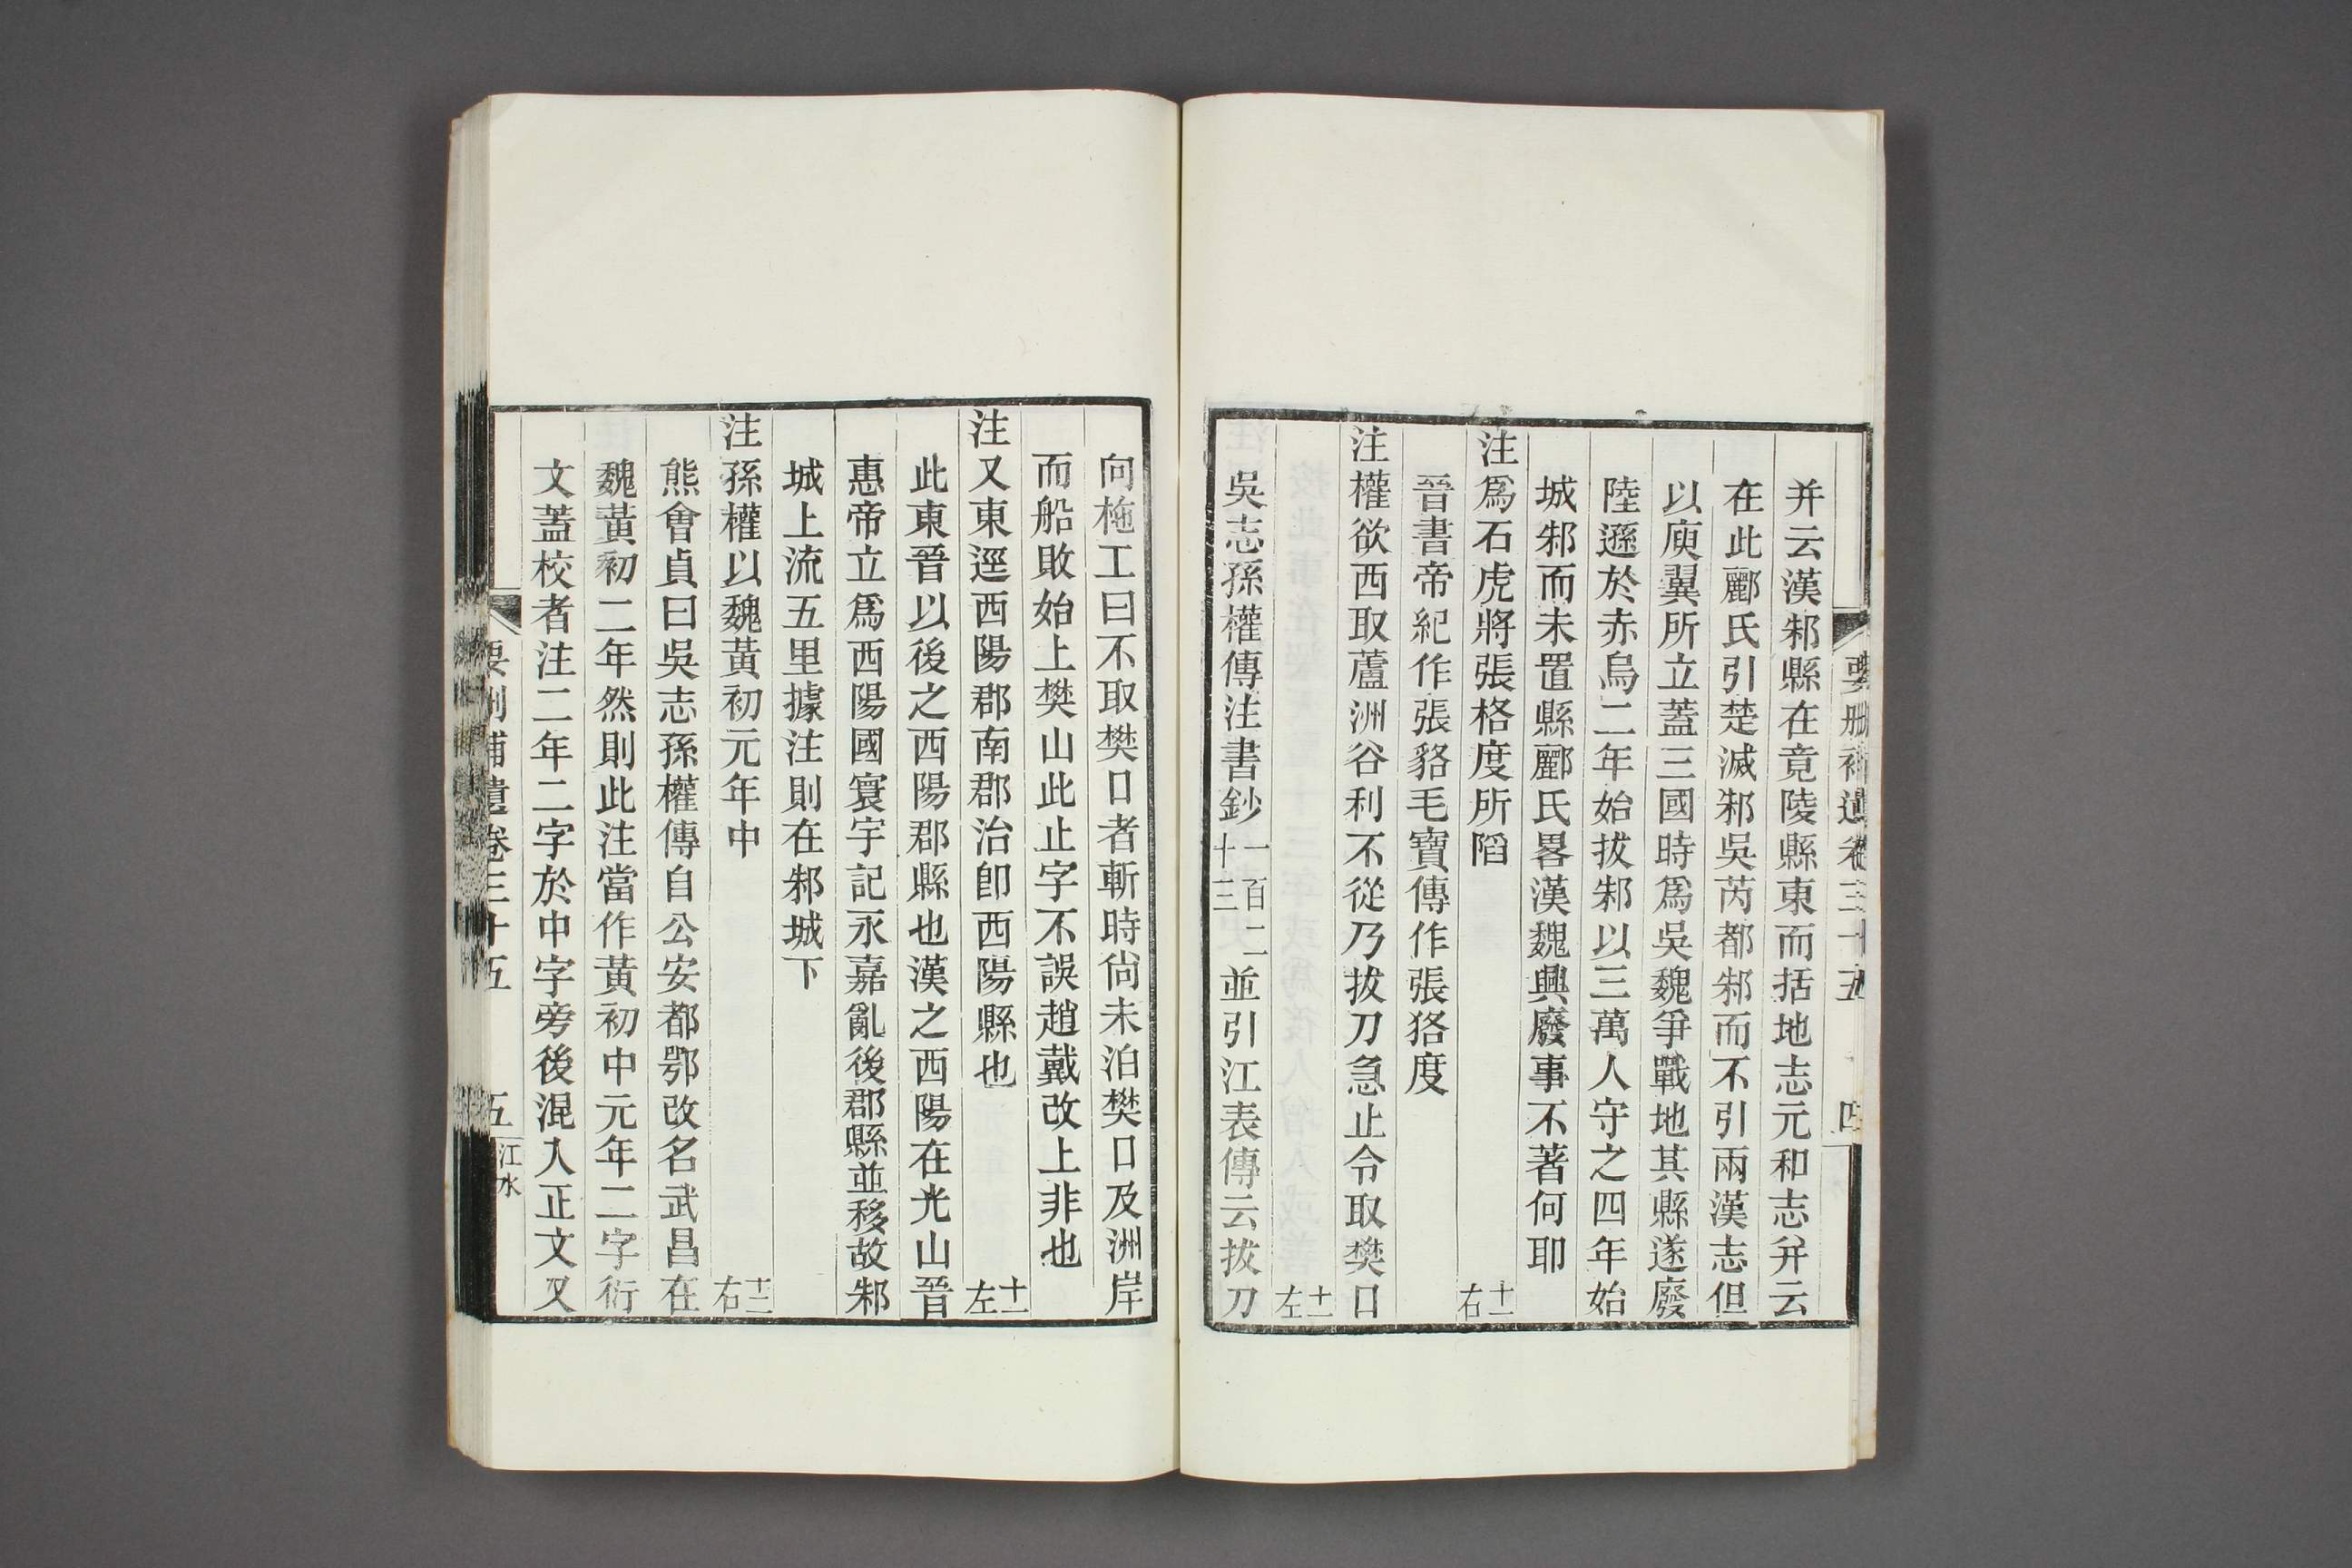 要刪補遺卷三十五 四
并云漢邾縣在竟陵縣東而括地志元和志并云
在此酈氏引楚滅邾吳芮都邾而不引兩漢志但
以庾翼所立蓋三國時爲吳魏爭戰地其縣遂廢
陸遜於赤烏二年始拔邾以三萬人守之四年始
城邾而未置縣酈氏畧漢魏興廢事不著何耶
注爲石虎將張格度所䧟 十一右
晉書帝紀作張貉毛寶傳作張狢度
注權欲西取蘆洲谷利不從乃拔刀急止令取樊口
十一左
吳志孫權傳注書鈔一百二十三並引江表傳云拔刀
向柂工曰不取樊口者斬時尙未泊樊口及洲岸
而船敗始上樊山此止字不誤趙戴改上非也
注又東逕西陽郡南郡治卽西陽縣也 十一左
此東晉以後之西陽郡縣也漢之西陽在光山晉
惠帝立爲西陽國寰宇記永嘉亂後郡縣並移故邾
城上流五里據注則在邾城下
注孫權以魏黃初元年中 十二右
熊會貞曰吳志孫權傳自公安都鄂改名武昌在
魏黃初二年然則此注當作黃初中元年二字衍
文蓋校者注二年二字於中字旁後混入正文又
要刪補遺卷三十五 五 江水